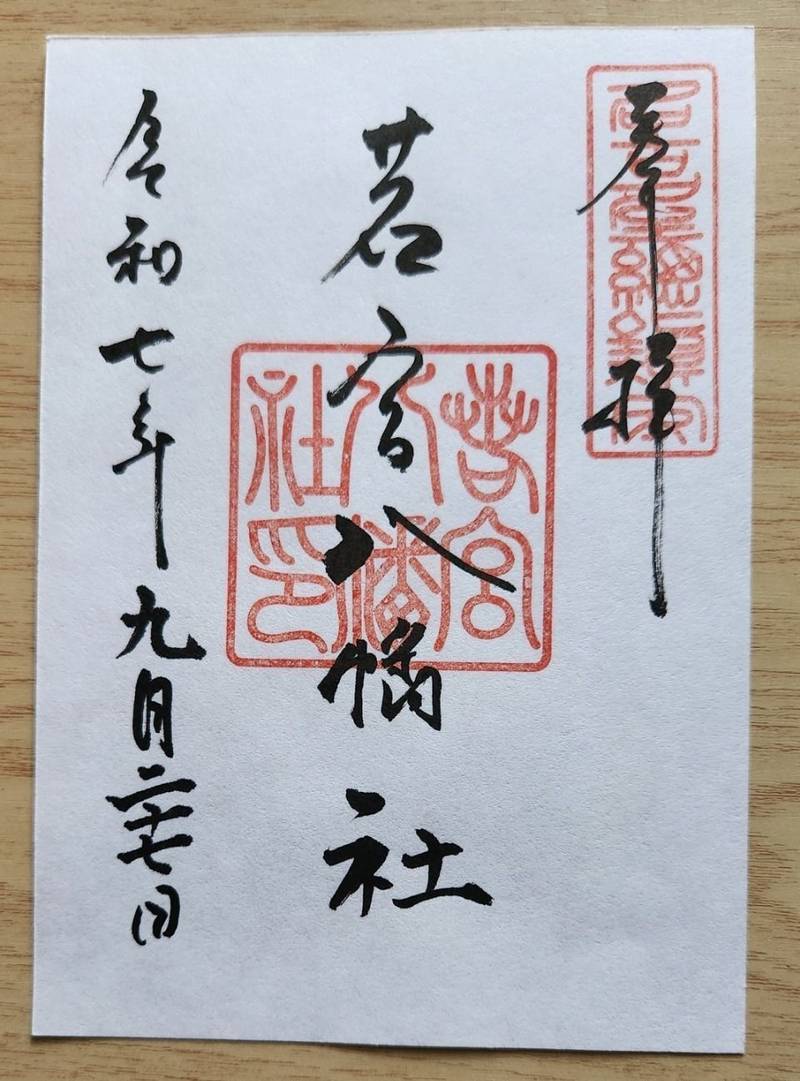 奉拝
若宮八幡社
令和七年九月二十七日
若宮
八幡
社印